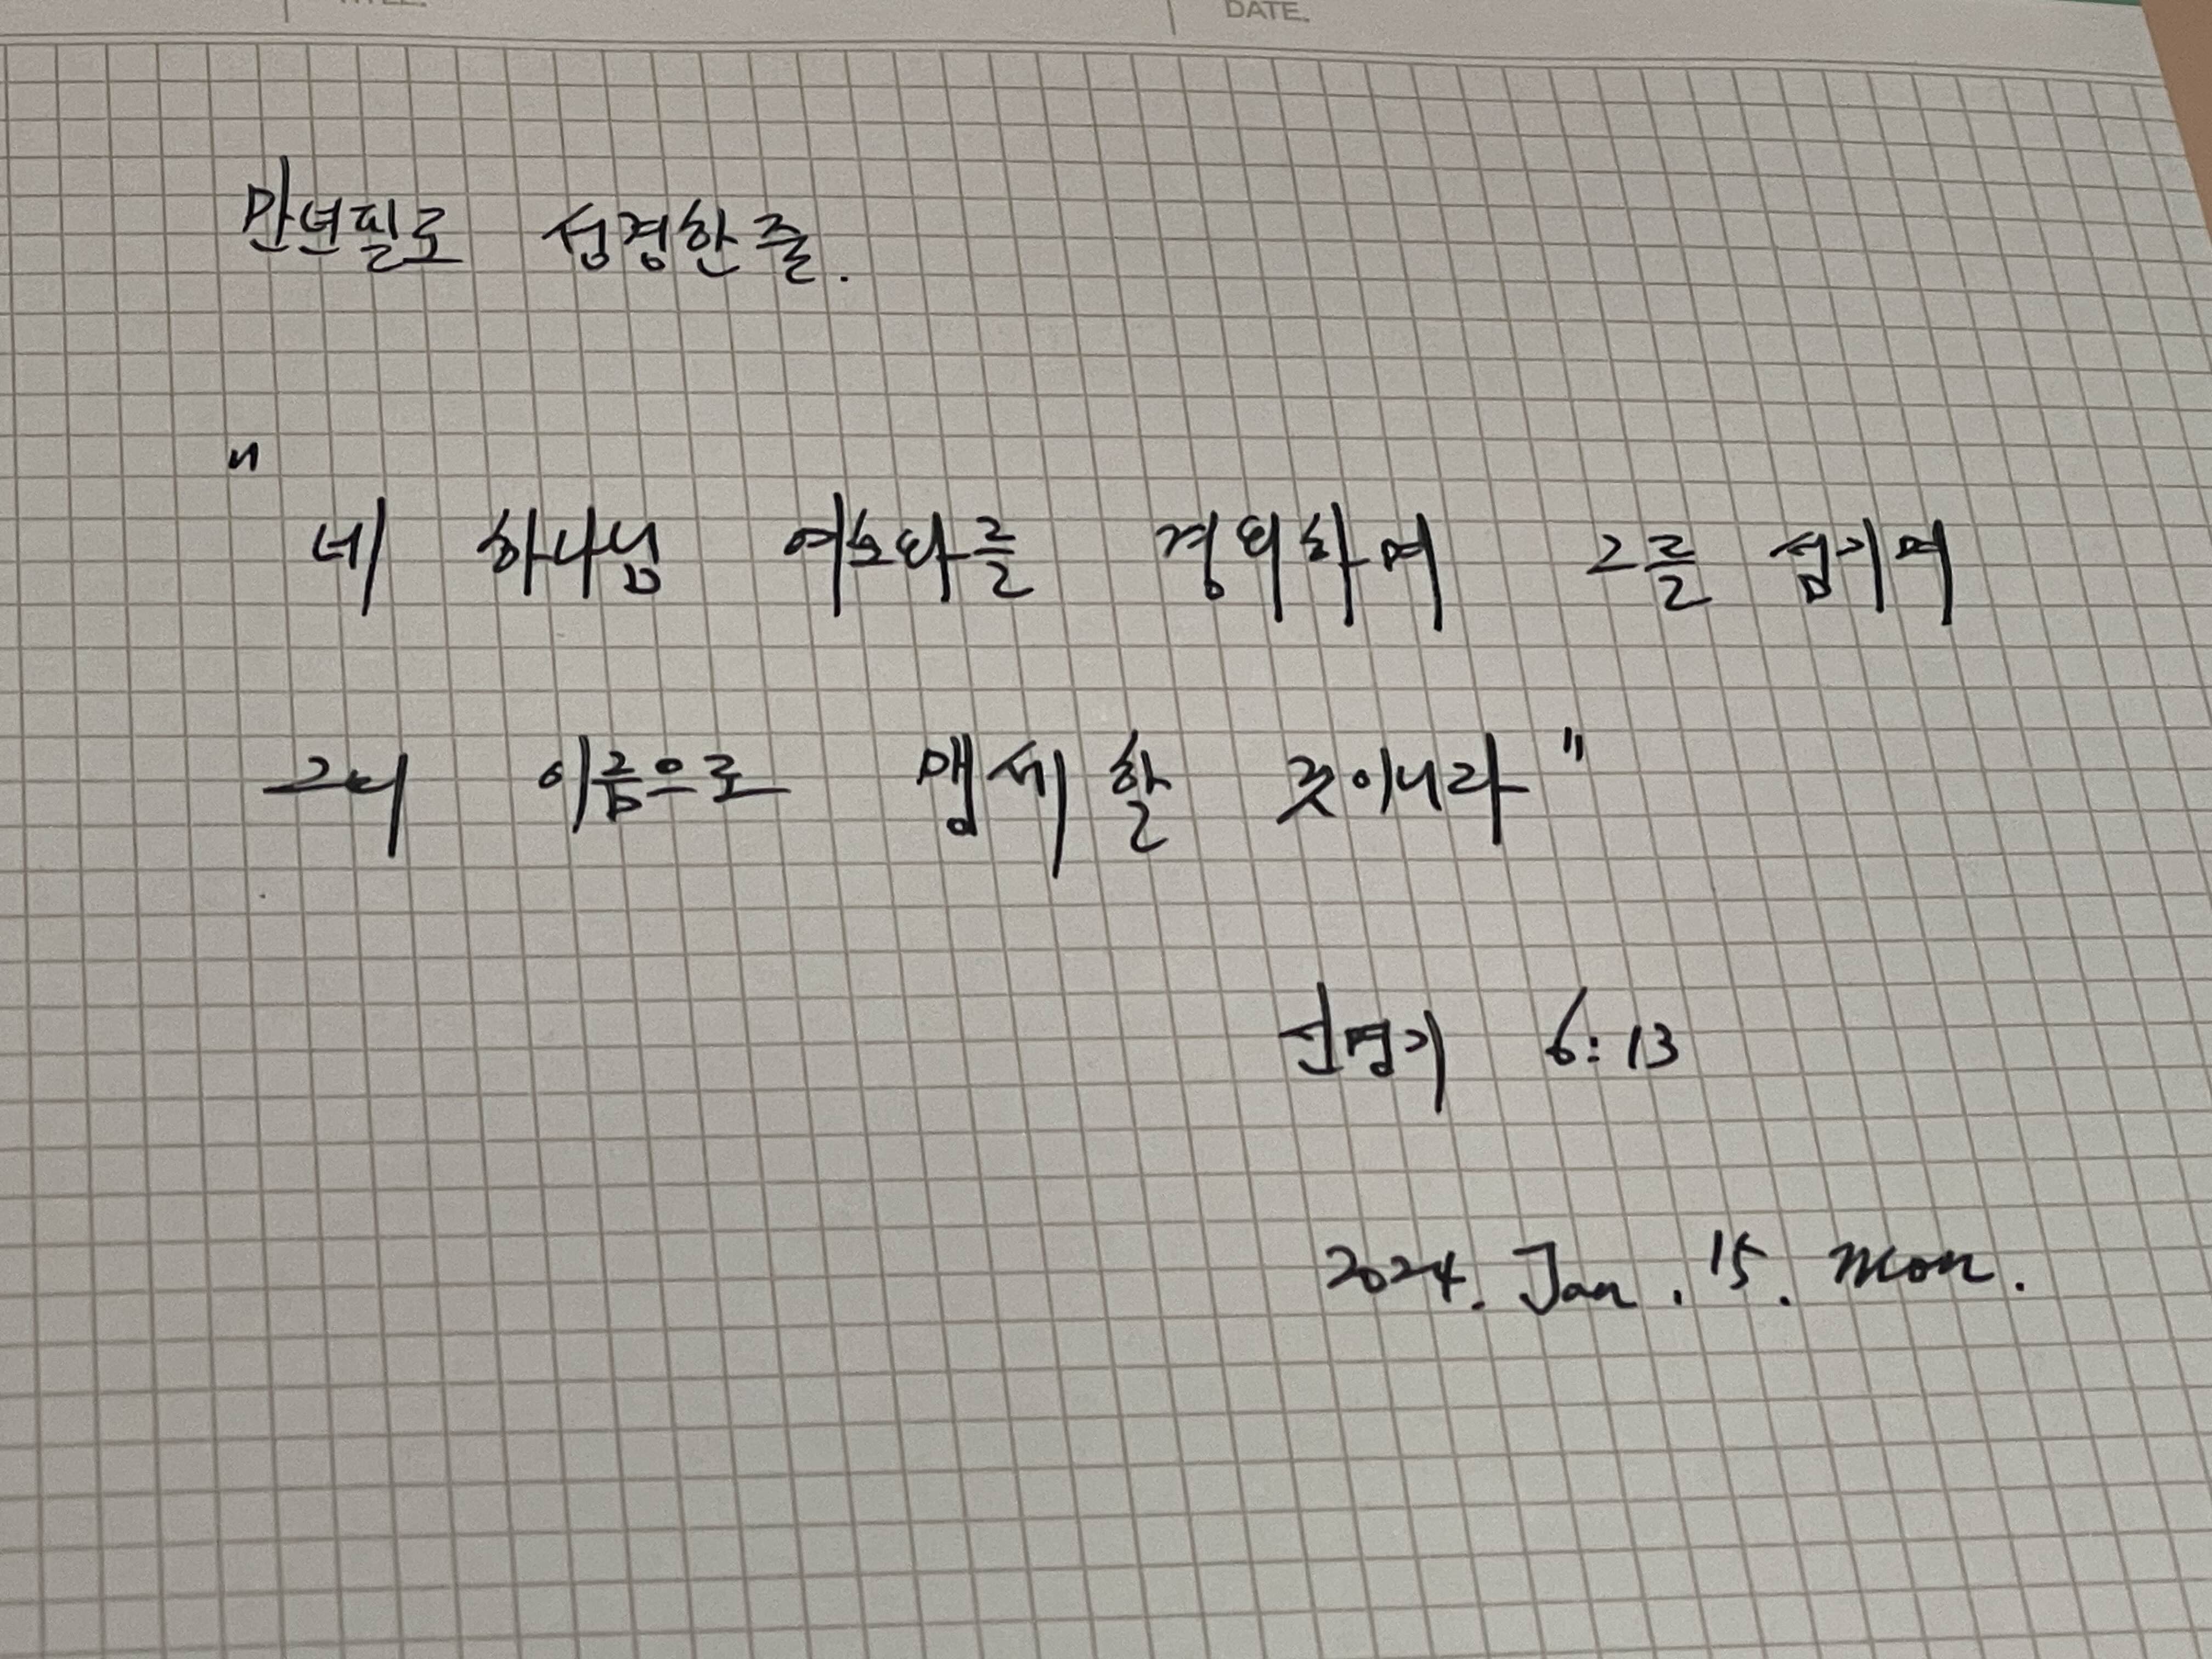 TITLE. DATE.
만년필로 성경한줄.
"네 하나님 여호와를 경외하며 그를 섬기며
그의 이름으로 맹세할 것이니라"
신명기 6:13
2024. Jan. 15. Mon.